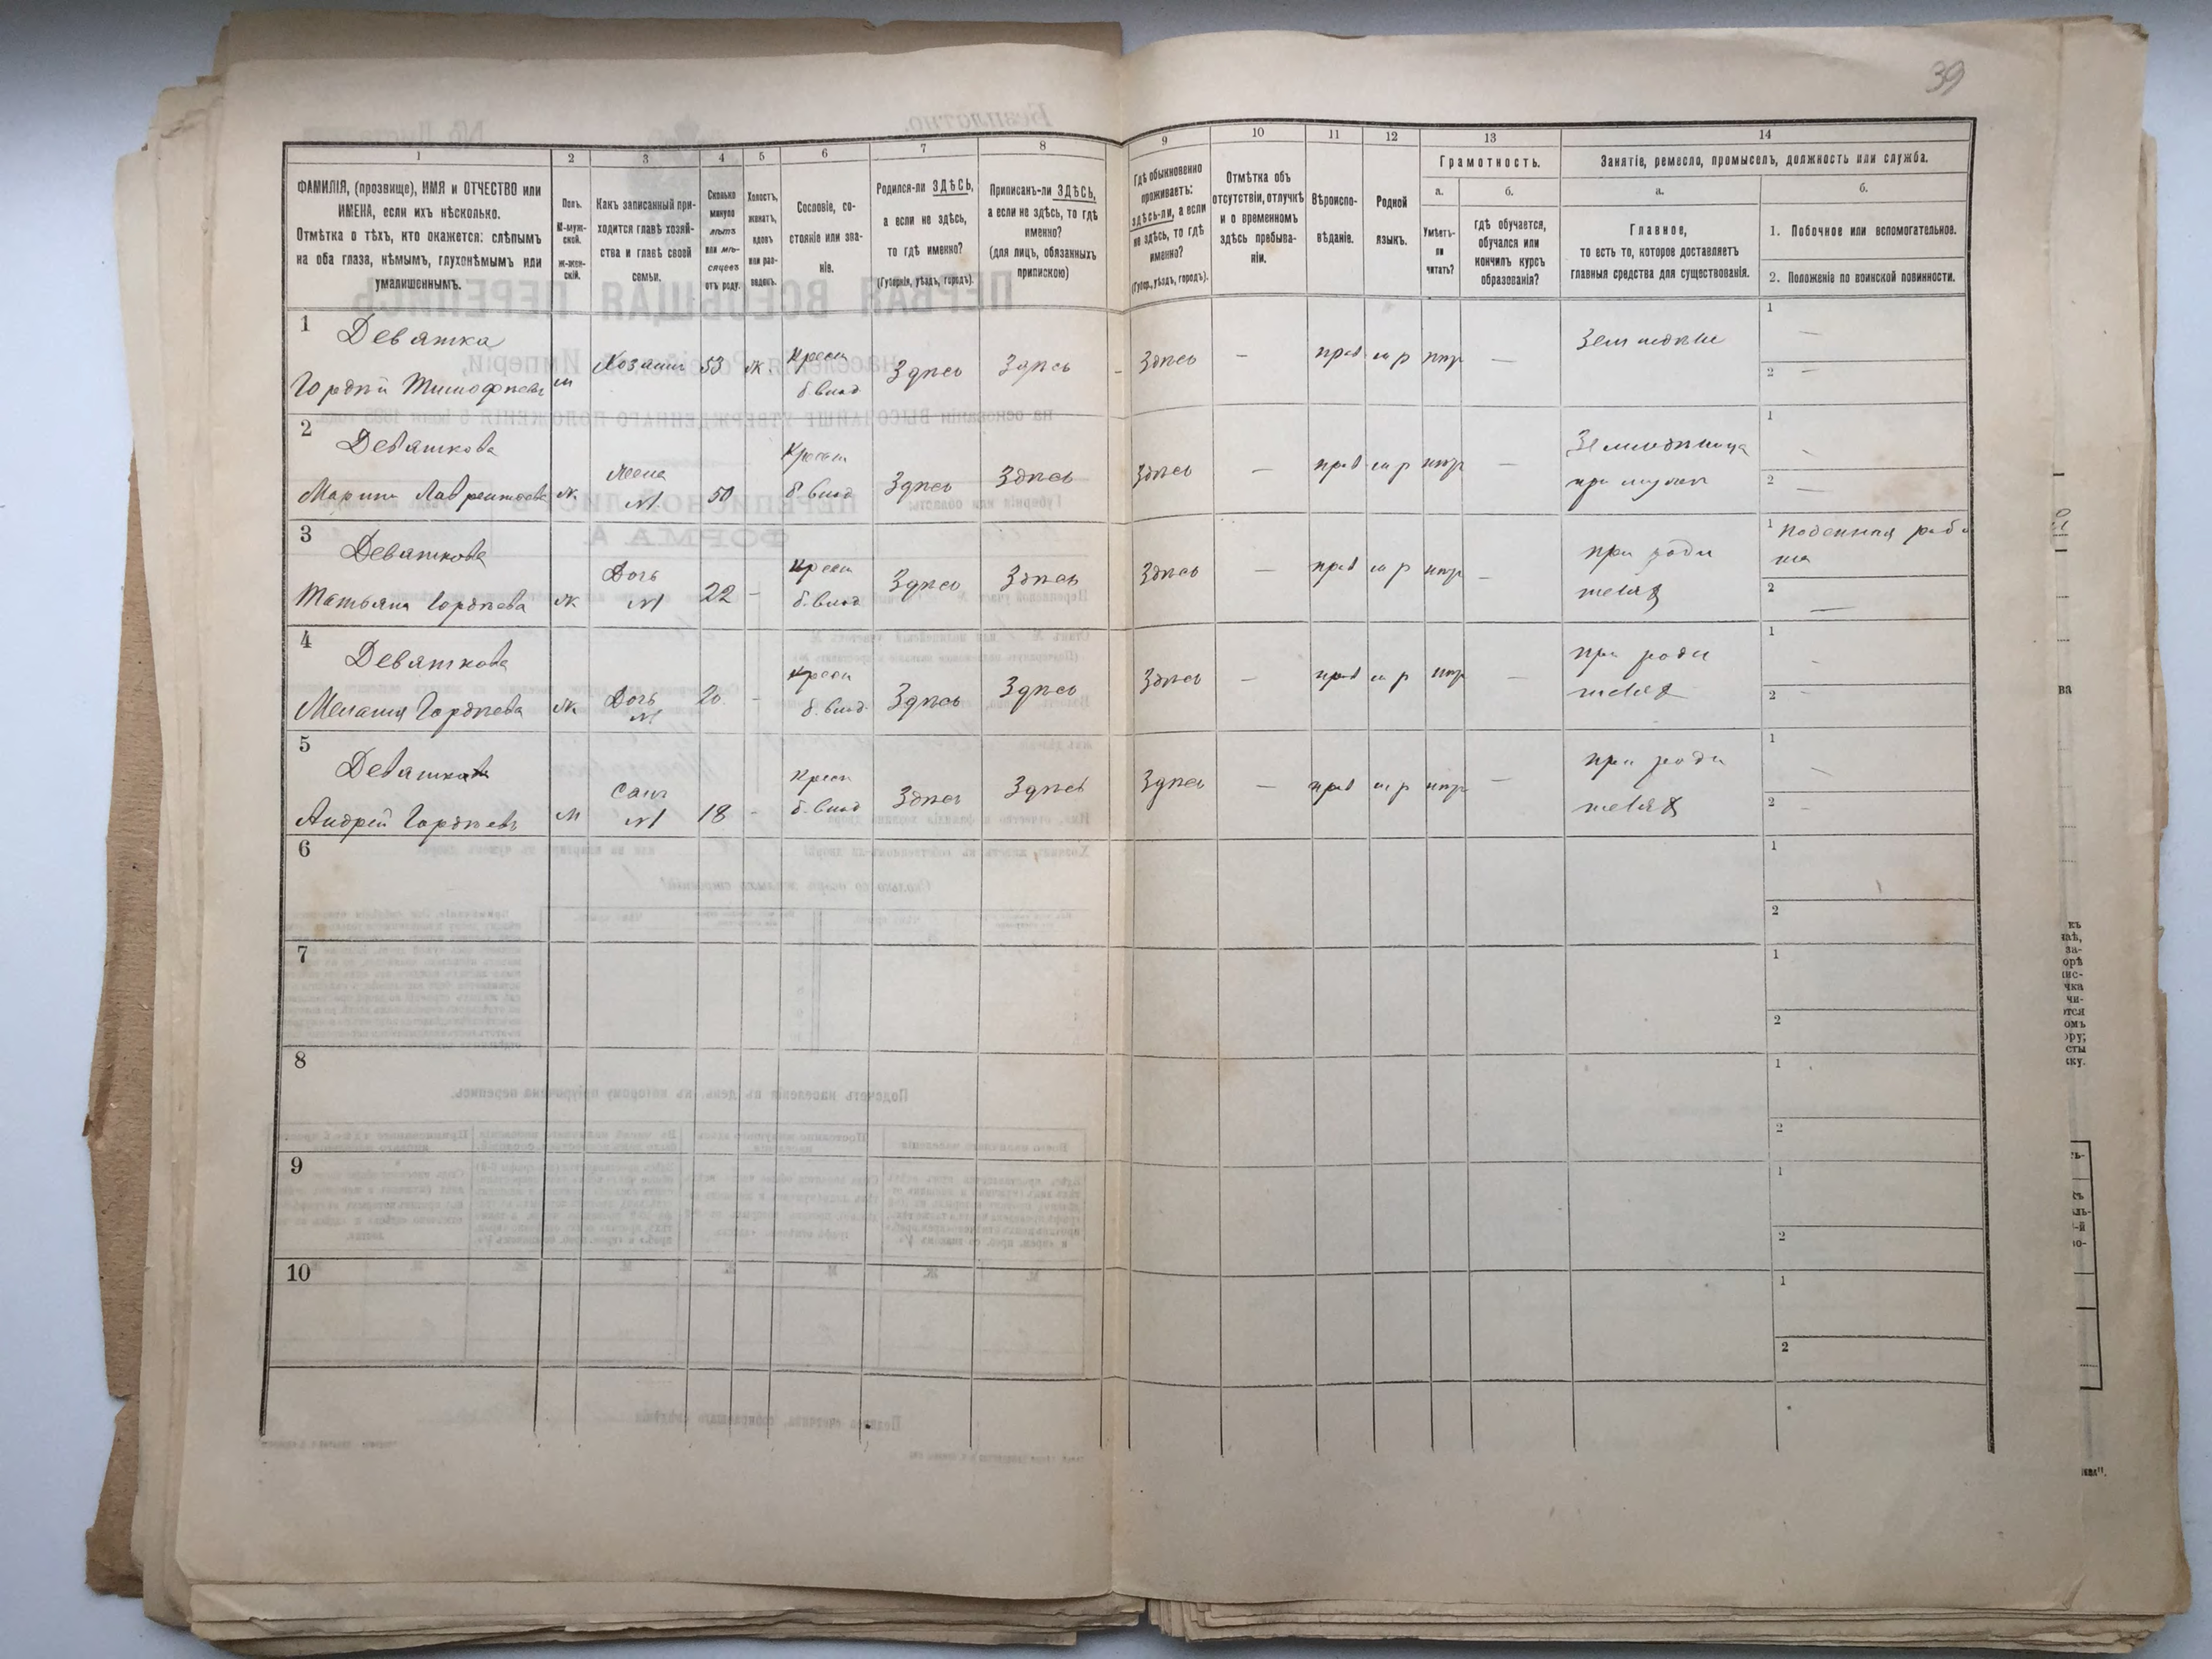 39
1
2
3
4
5
6
7
8
9
10
11
12
13
14
ФАМИЛІЯ, (прозвище), ИМЯ и ОТЧЕСТВО или
ИМЕНА, если ихъ нѣсколько.
Отмѣтка о тѣхъ, кто окажется: слѣпымъ
на оба глаза, нѣмымъ, глухонѣмымъ или
умалишеннымъ.
Полъ.
М-муж-
ской.
Ж-жен-
скій.
Какъ записанный при-
ходится главѣ хозяй-
ства и главѣ своей
семьи.
Сколько
минуло
лѣтъ
или мѣ-
сяцевъ
отъ роду.
Холостъ,
женатъ,
вдовъ
или раз-
веденъ.
Сословіе, со-
стояніе или зва-
ніе.
Родился-ли ЗДѢСЬ,
а если не здѣсь,
то гдѣ именно?
(Губернія, уѣздъ, городъ).
Приписанъ-ли ЗДѢСЬ,
а если не здѣсь, то гдѣ
именно?
(для лицъ, обязанныхъ
припискою)
Гдѣ обыкновенно
проживаетъ:
здѣсь-ли, а если
не здѣсь, то гдѣ
именно?
(Губер., уѣздъ, городъ).
Отмѣтка объ
отсутствіи, отлучкѣ
и о временномъ
здѣсь пребыва-
ніи.
Вѣроиспо-
вѣданіе.
Родной
языкъ.
Грамотность.
а.
б.
Умѣетъ-
ли
читать?
гдѣ обучается,
обучался или
кончилъ курсъ
образованія?
Занятіе, ремесло, промыселъ, должность или служба.
а.
б.
Главное,
то есть то, которое доставляетъ
главныя средства для существованія.
1. Побочное или вспомогательное.
2. Положеніе по воинской повинности.
1
Девятка
Гордѣй Тимофѣевъ
м
Хозяинъ
53
ж.
Крест
б. влад
Здѣсь
Здѣсь
Здѣсь
—
прав
м р
нѣт
—
Земледѣл
1 —
2 —
2
Девяткова
Марина Лаврентьева
ж
Жена
М
50
Крест
б. влад
Здѣсь
Здѣсь
Здѣсь
—
прав
м р
нѣт
—
Земледѣлица
при мужѣ
1
2 —
3
Девяткова
Татьяна Гордѣева
ж
Дочь
М
22
-
крест
б. влад
Здѣсь
Здѣсь
Здѣсь
—
прав
м р
нѣт
—
при роди
теляхъ
1 Поденная рабо
та
2 —
4
Девяткова
Мелания Гордѣева
ж
Дочь
М
20
-
крест
б. влад
Здѣсь
Здѣсь
Здѣсь
—
прав
м р
нѣт
—
при роди
теляхъ
1 -
2 -
5
Андрей Гордѣевъ
м
Сынъ
М
18
-
крест
б. влад
Здѣсь
Здѣсь
Здѣсь
—
прав
м р
нѣт
—
при роди
теляхъ
1
2 -
6
1
2
7
1
2
8
1
2
9
1
2
10
1
2